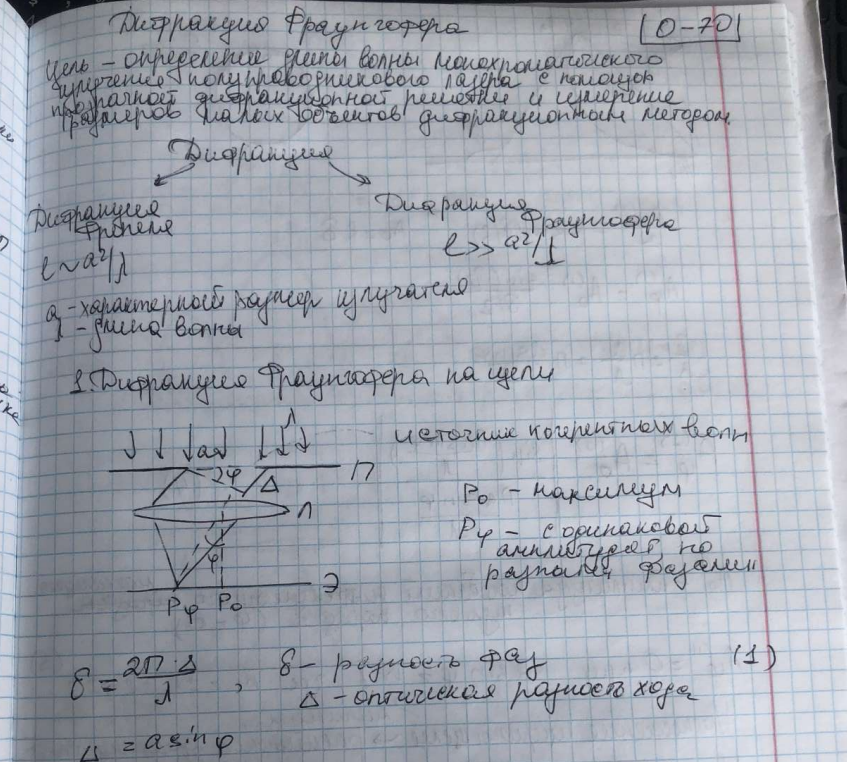 Дифракция Фраунгофера
О-70
Цель – определение длины волны монохроматического
излучения полупроводникового лазера с помощью
прозрачной дифракционной решетки и измерение
размеров малых объектов дифракционным методом.
Дифракция
Дифракция
Френеля
l ~ a²/λ
Дифракция
Фраунгофера
l >> a²/λ
a - характерный размер излучателя
λ - длина волны
1. Дифракция Фраунгофера на щели
источник когерентных волн
a
φ
Δ
П
Л
φ
Э
Pφ P₀
P₀ - максимум
Pφ - с одинаковой
амплитудой, но
разными фазами
δ = 2π·Δ/λ , δ - разность фаз (1)
Δ - оптическая разность хода
Δ = a sin φ